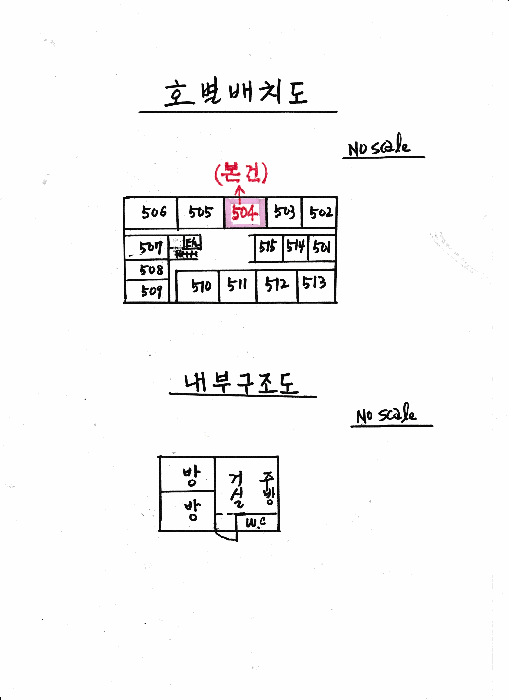 호별배치도
No scale
(본건)
506 505 504 503 502
507 E/V 515 514 501
508
509 510 511 512 513
내부구조도
No scale
방 거실 주방
방 W.C